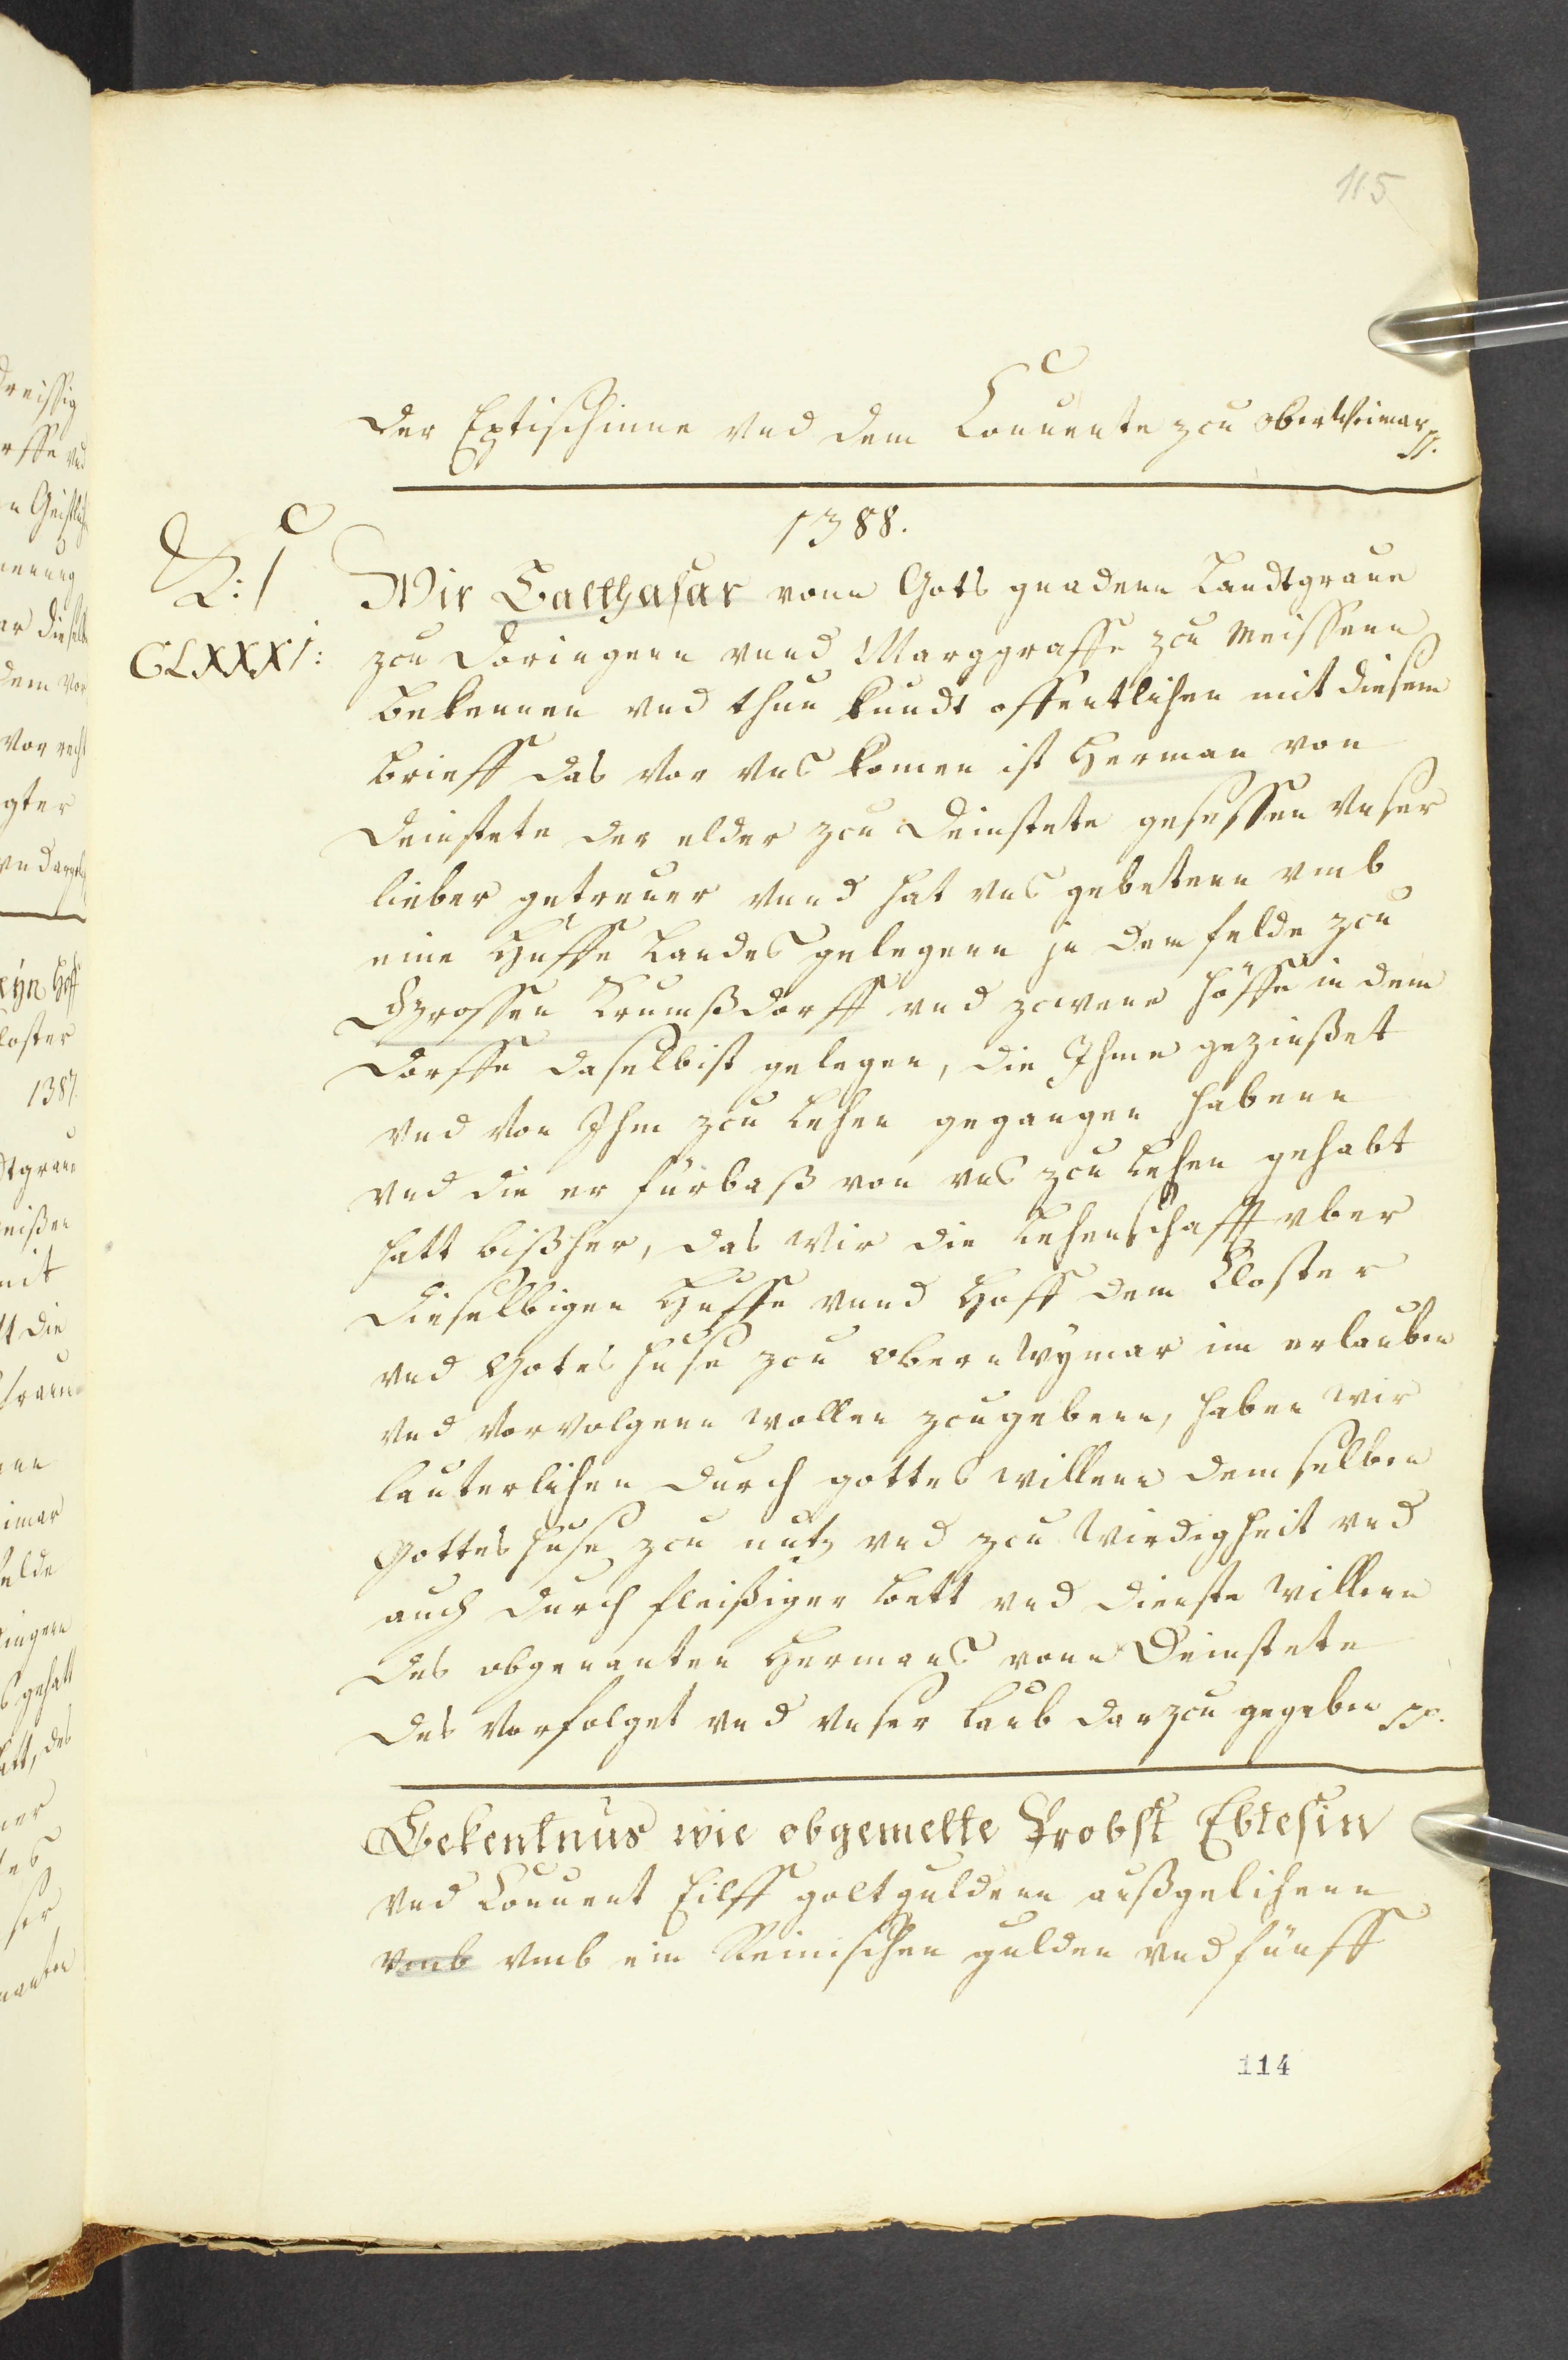 115
der Eptischinne vnd dem Conuente zcu oberWeimar pp.
1388.
L: 1
CLXXXI:
Wir Balthasar vonn Gots gnadenn Landtgraue
zcu Doringenn vnnd Marggraffe zcu Meissenn
bekennen vnd thun kundt offentlichen mit diesem
brieff das vor vns komen ist Herman von
Deinstete der elder zcu Deinstete gesessen vnser
lieber getreuer vnnd hat vns gebetenn vmb
eine Huffe Landes gelegenn jn dem felde zcu
Grossen Krumßdorff vnd zcwene Höffe in dem
Dorffe daselbist gelegen, die Ihme gezinßet
vnd von Ihm zcu Lehen gegangen habenn
vnd die er fürbaß von vns zcu Lehen gehabt
hatt bißher, das wir die Lehenschafft vber
dieselbigen Huffe vnnd Hoff dem Closter
vnd Gotes huse zcu obern Wymar im erlauben
vnd vorvolgenn wollen zcugebenn, haben wir
lauterlichen durch gottes willenn demselben
Gottes huse zcu nutz vnd zcu Wirdigheit vnd
auch durch fleißiger bett vnd dienste willenn
des obgenanten Hermans vonn Deinstete
des vorfolget vnd vnser laub darzcu gegeben pp.
Bekentnus wie obgemelte Probst Ebtesin
vnd Conuent Eilff goltguldenn außgelihenn
vmb vmb ein Reinischen gulden vnd fünff
114